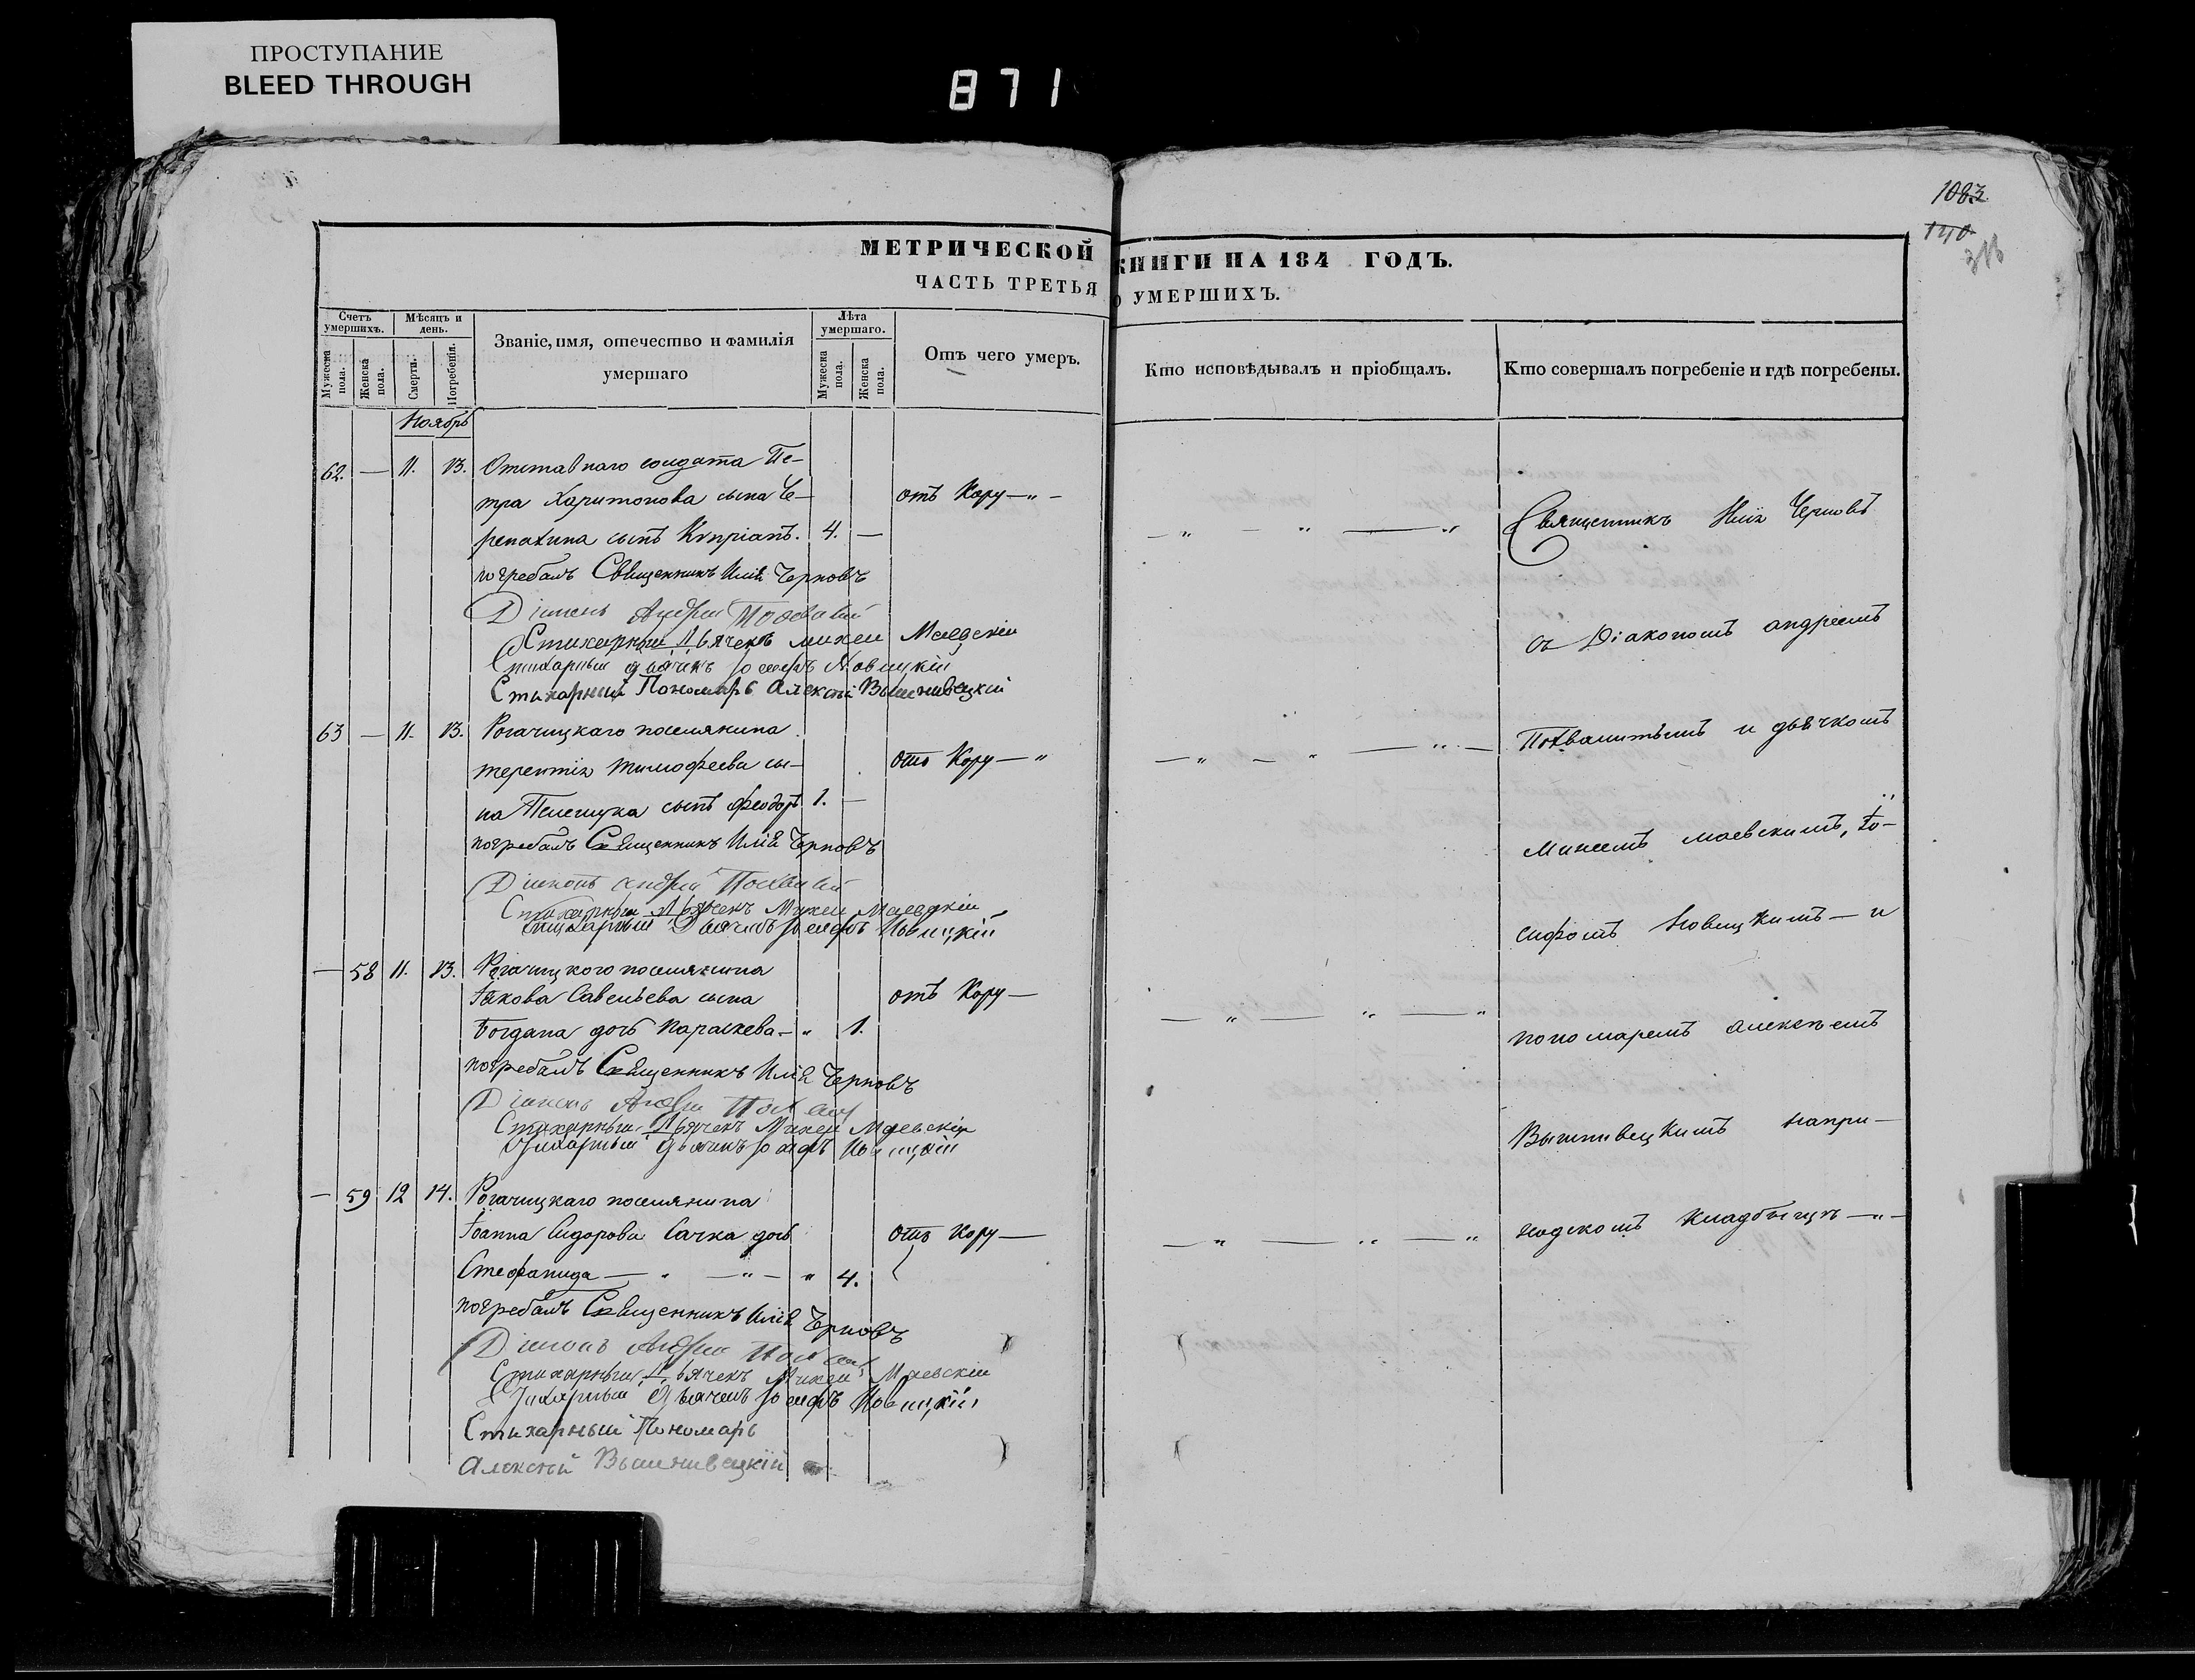 ПРОСТУПАНИЕ
BLEED THROUGH
871
1083
140
МЕТРИЧЕСКОЙ КНИГИ НА 184 ГОДЪ.
ЧАСТЬ ТРЕТЬЯ О УМЕРШИХЪ.
Счетъ умершихъ.
Мужеска пола.
Женска пола.
Мѣсяцъ и день.
Смерти.
Погребенія.
Званіе, имя, отечество и фамилія
умершаго
Лѣта умершаго.
Мужеска пола.
Женска пола.
Отъ чего умеръ.
Кто исповѣдывалъ и пріобщалъ.
Кто совершалъ погребеніе и гдѣ погребены.
Ноябрь
62. — 11. 13. Отставнаго солдата Пе-
тра Харитонова сына Че- отъ Кору —„—
репахина сынъ Кѵпріанъ. 4. —
погребалъ Священникъ Илія Черновъ
Діаконъ Андрей Похвалій
Стихарный Дьячекъ Михеи Маевскіи
Стихарный дьячекъ Іосифъ Новицкій
Стихарный Пономарь Алексѣй Вышнивецкій
63 — 11. 13. Рогачицкаго поселянина
терентія тимофеева сы- отъ Кору —„
на Пелепука сынъ феодоръ 1. —
погребалъ Священникъ Илія Черновъ
Діаконъ Андрей Похвалій
Стихарный Дьячекъ Михеи Маевскіи
Стихарный Дьячекъ Іосифъ Новицкій
— 58 11. 13. Рогачицкого поселянина
Іакова Савельева сына отъ Кору —
Богдана дочь Параскева — „ 1.
погребалъ Священникъ Илія Черновъ
Діаконъ Андрей
Стихарный Дьячекъ Михеи Маевскіи
Стихарный Дьячекъ Іосифъ Новицкій
— 59 12 14. Рогачицкаго поселянина
Іоанна Сидорова Сачка дочь отъ Кору —
Стефанида — „ — „ — „ 4.
погребалъ Священникъ Илія Черновъ
Діаконъ Андрей
Стихарный Дьячекъ Михеи Маевскіи
Стихарный Дьячекъ Іосифъ Новицкій
Стихарный Пономарь
Алексѣй Вышнивецкій
Священникъ Илія Черновъ
съ Діакономъ андреемъ
Похвалитымъ и дьячкомъ
Михеемъ маевскимъ, Іо-
сифомъ Новицкимъ — и
пономаремъ алексѣемъ
Вышнивецкимъ на при-
ходскомъ кладбищѣ —„—